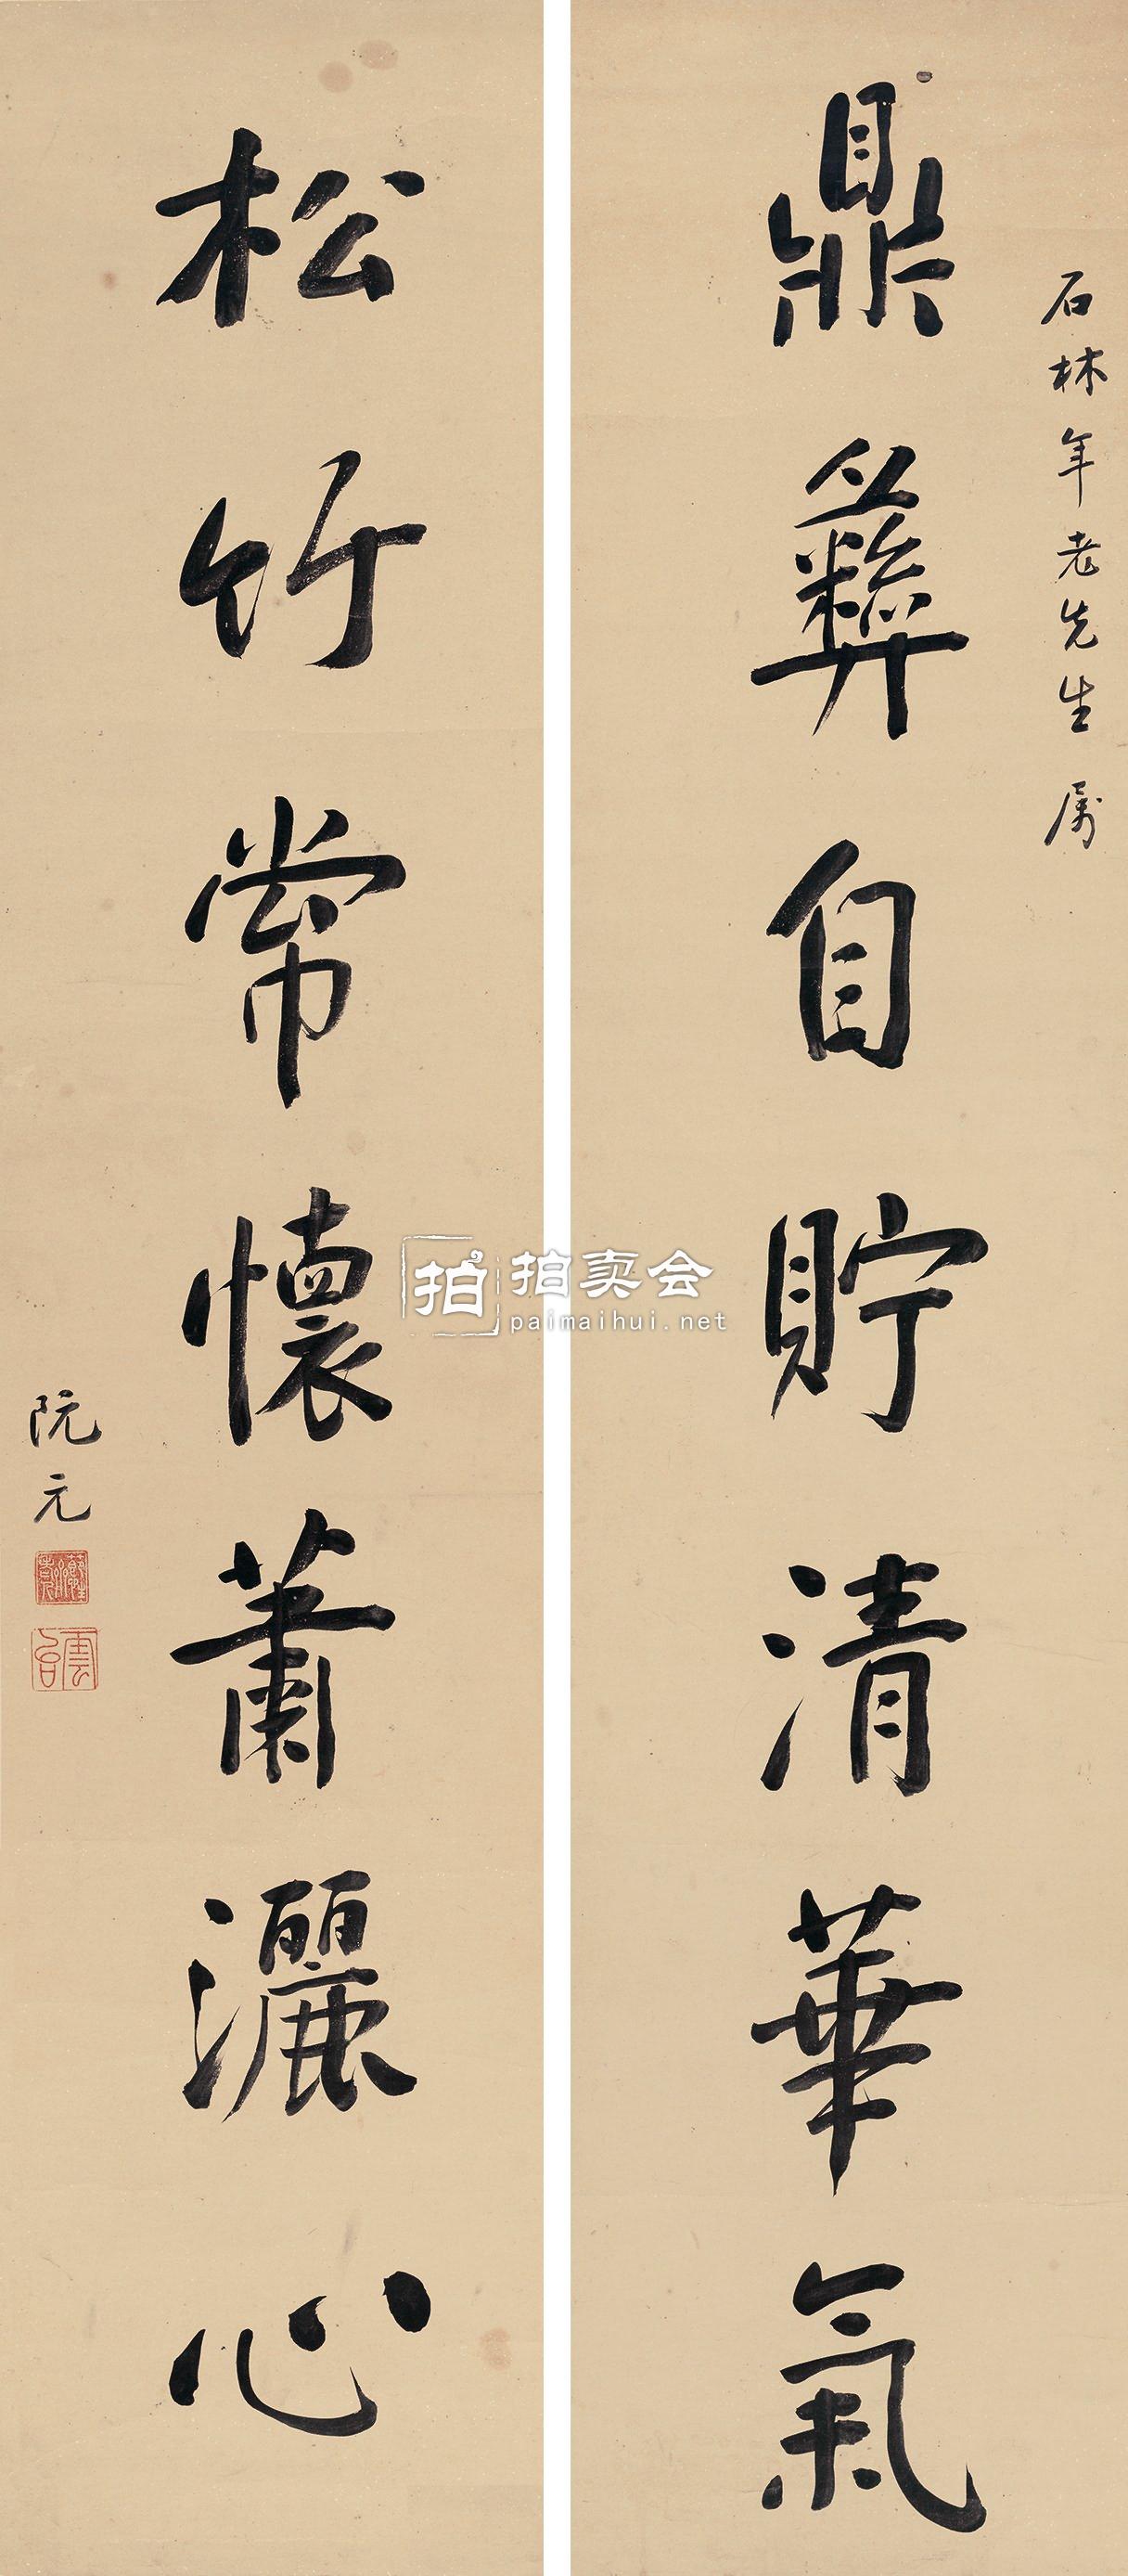 石林年老先生属
鼎彝自貯清華氣
松竹常懷蕭灑心
阮元
雲台
拍 拍卖会
paimaihui.net